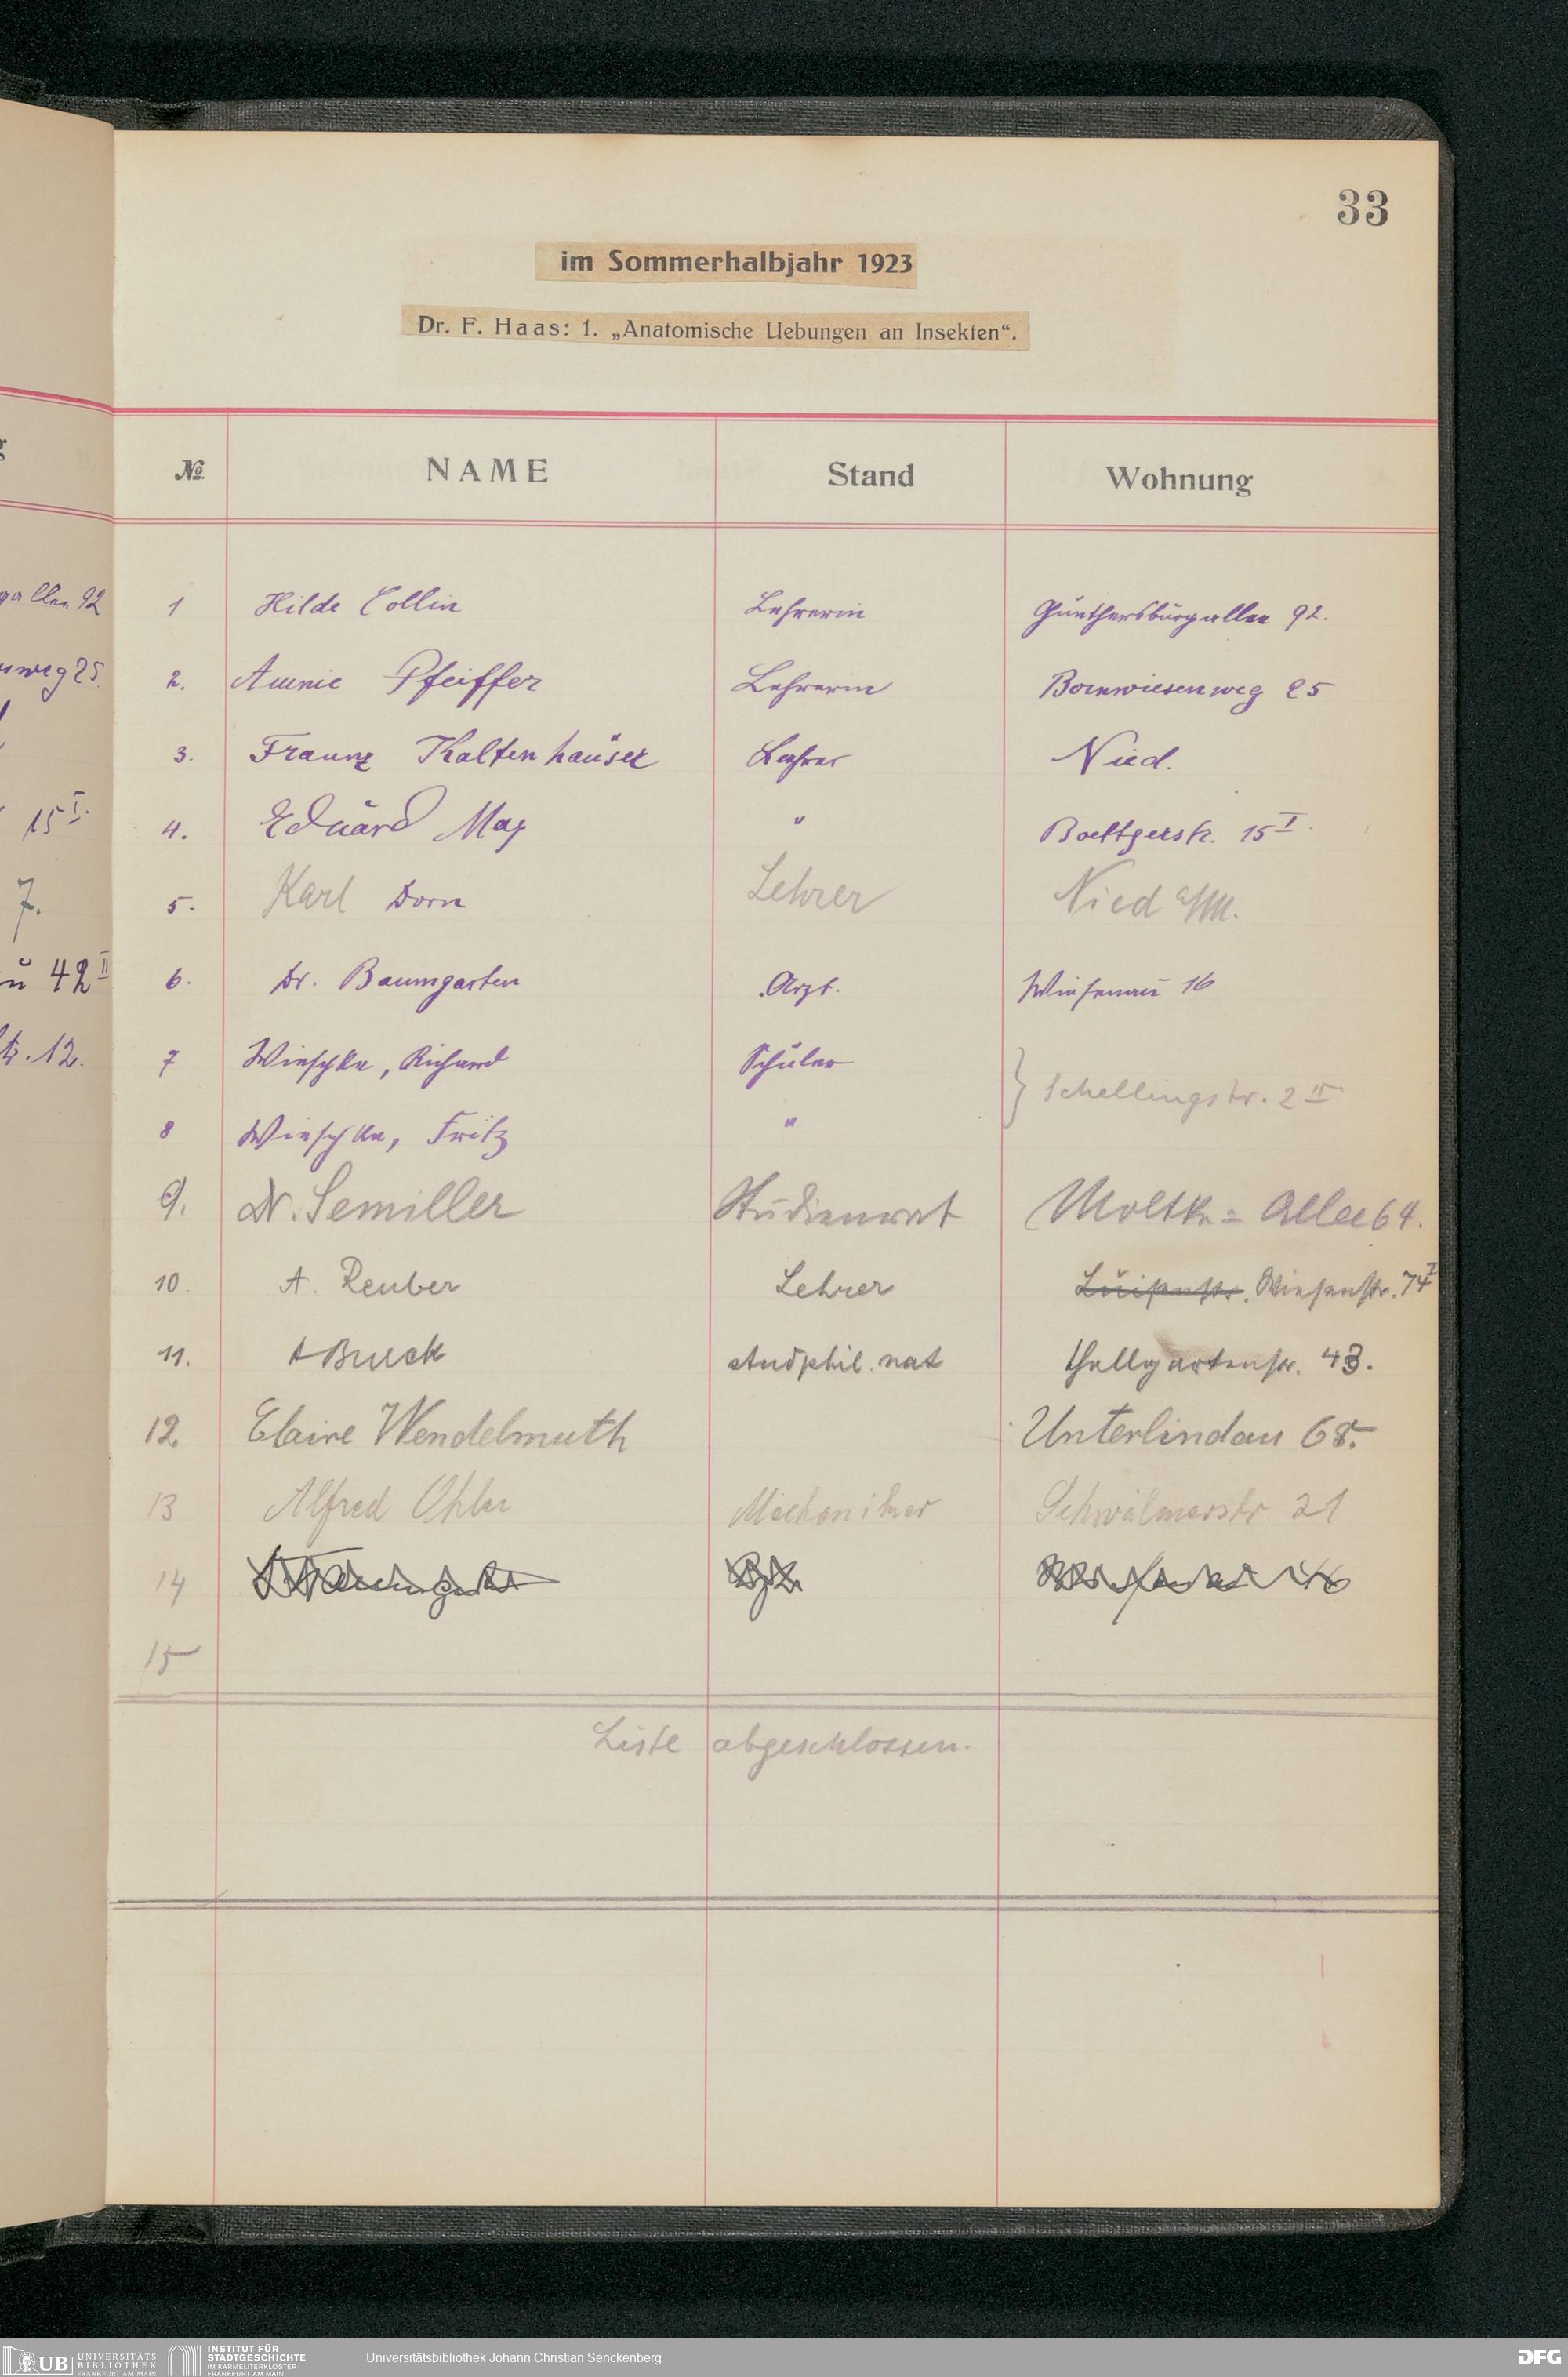 33
im Sommerhalbjahr 1923
Dr. F. Haas: 1. „Anatomische Uebungen an Insekten“.
№ NAME Stand Wohnung
1 Hilde Collin Lehrerin Günthersburgallee 92.
2. Aennie Pfeiffer Lehrerin Bornwiesenweg 25
3. Franz Kaltenhäuser Lehrer Nied.
4. Eduard May " Boettgerstr. 15 I.
5. Karl Dorn Lehrer Nied a/M.
6. Dr. Baumgarten Arzt. Wiesenau 16
7 Wieschke, Richard Schüler } Schellingstr. 2 II
8 Wieschke, Fritz "
9. Dr. Semiller Studienrat Moltke=Allee 64.
10. A. Reuber Lehrer Luisenstr. Wiesenstr. 74 I
11. A Bruck stud phil. nat Hallgartenstr. 43.
12. Claire Wendelmuth Unterlindau 68.
13 Alfred Ohler Mechaniker Schwälmerstr. 21
14
15
Liste abgeschlossen.
gallee 92
nweg 25.
15 I.
7.
u 42 II
tr. 12.
UB UNIVERSITÄTS BIBLIOTHEK FRANKFURT AM MAIN
INSTITUT FÜR STADTGESCHICHTE IM KARMELITERKLOSTER FRANKFURT AM MAIN
Universitätsbibliothek Johann Christian Senckenberg
DFG